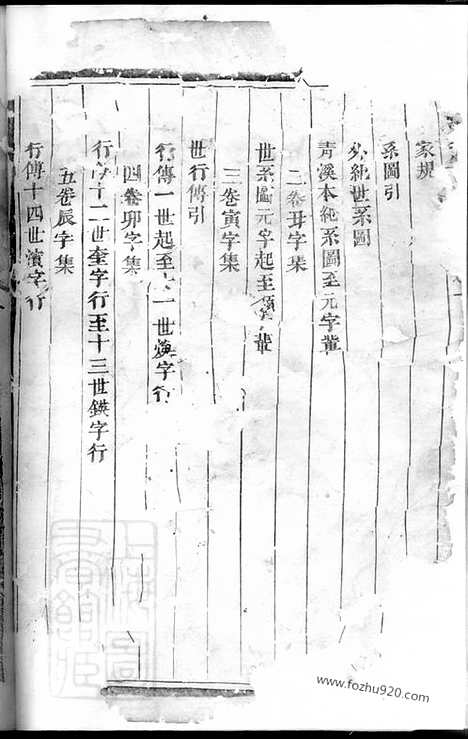 家規
系圖引
外純世系圖
青溪本純系圖至元字輩
二卷丑字集
世系圖元字起至輩
三卷寅字集
世行傳引
行傳一世起至一世字行
四卷卯字集
行十二世奎字行至十三世鍈字行
五卷辰字集
行傳十四世濱字行
www.fozhu920.com